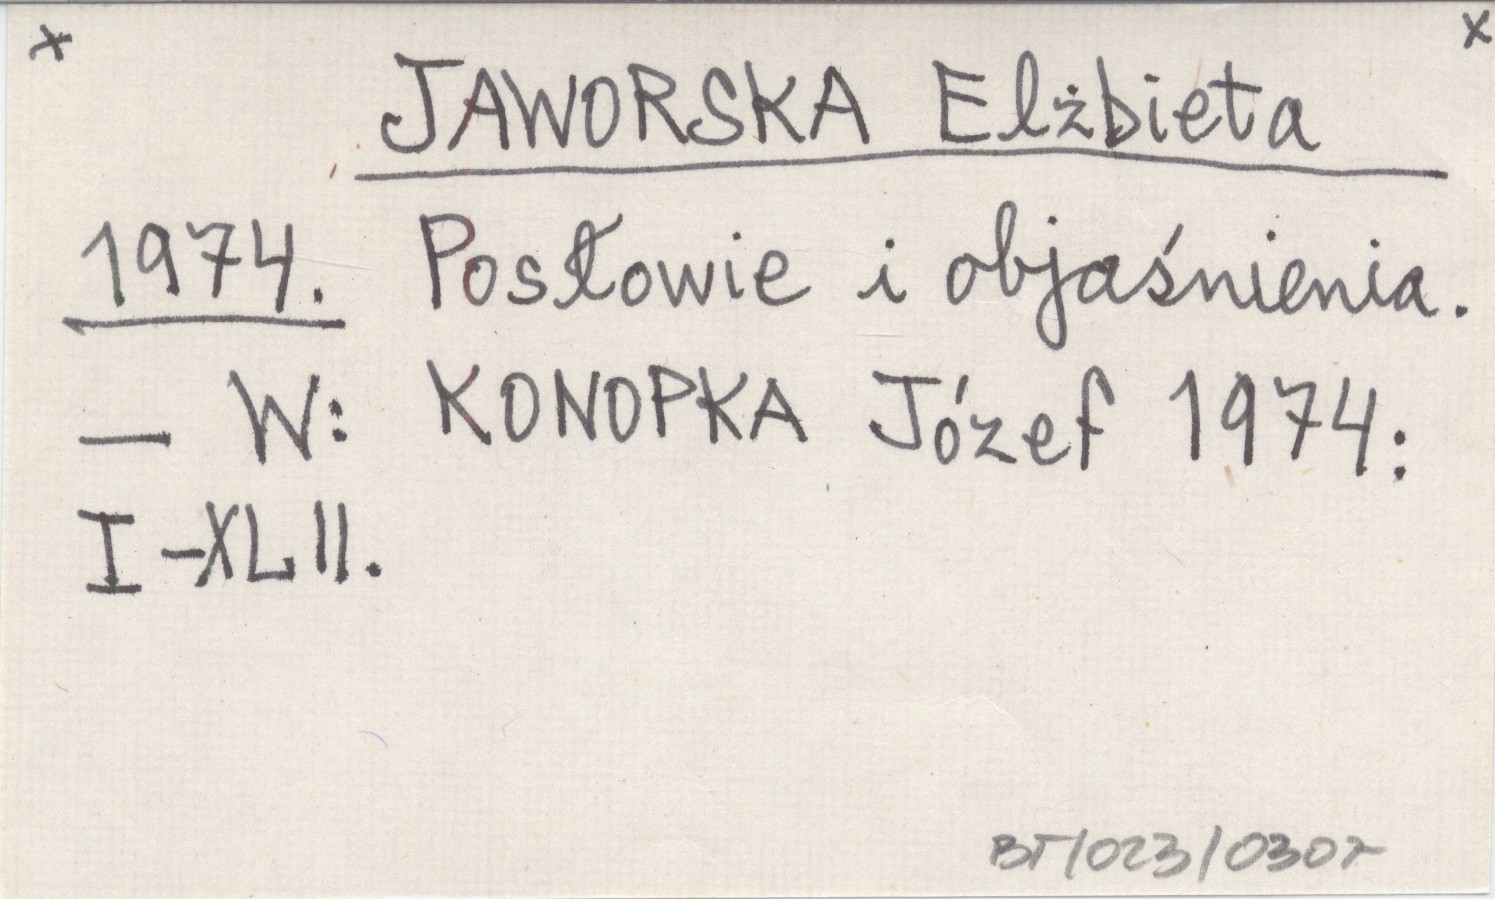 x x
JAWORSKA Elżbieta
1974. Posłowie i objaśnienia.
— W: KONOPKA Józef 1974:
I-XLII.
BT/023/0307